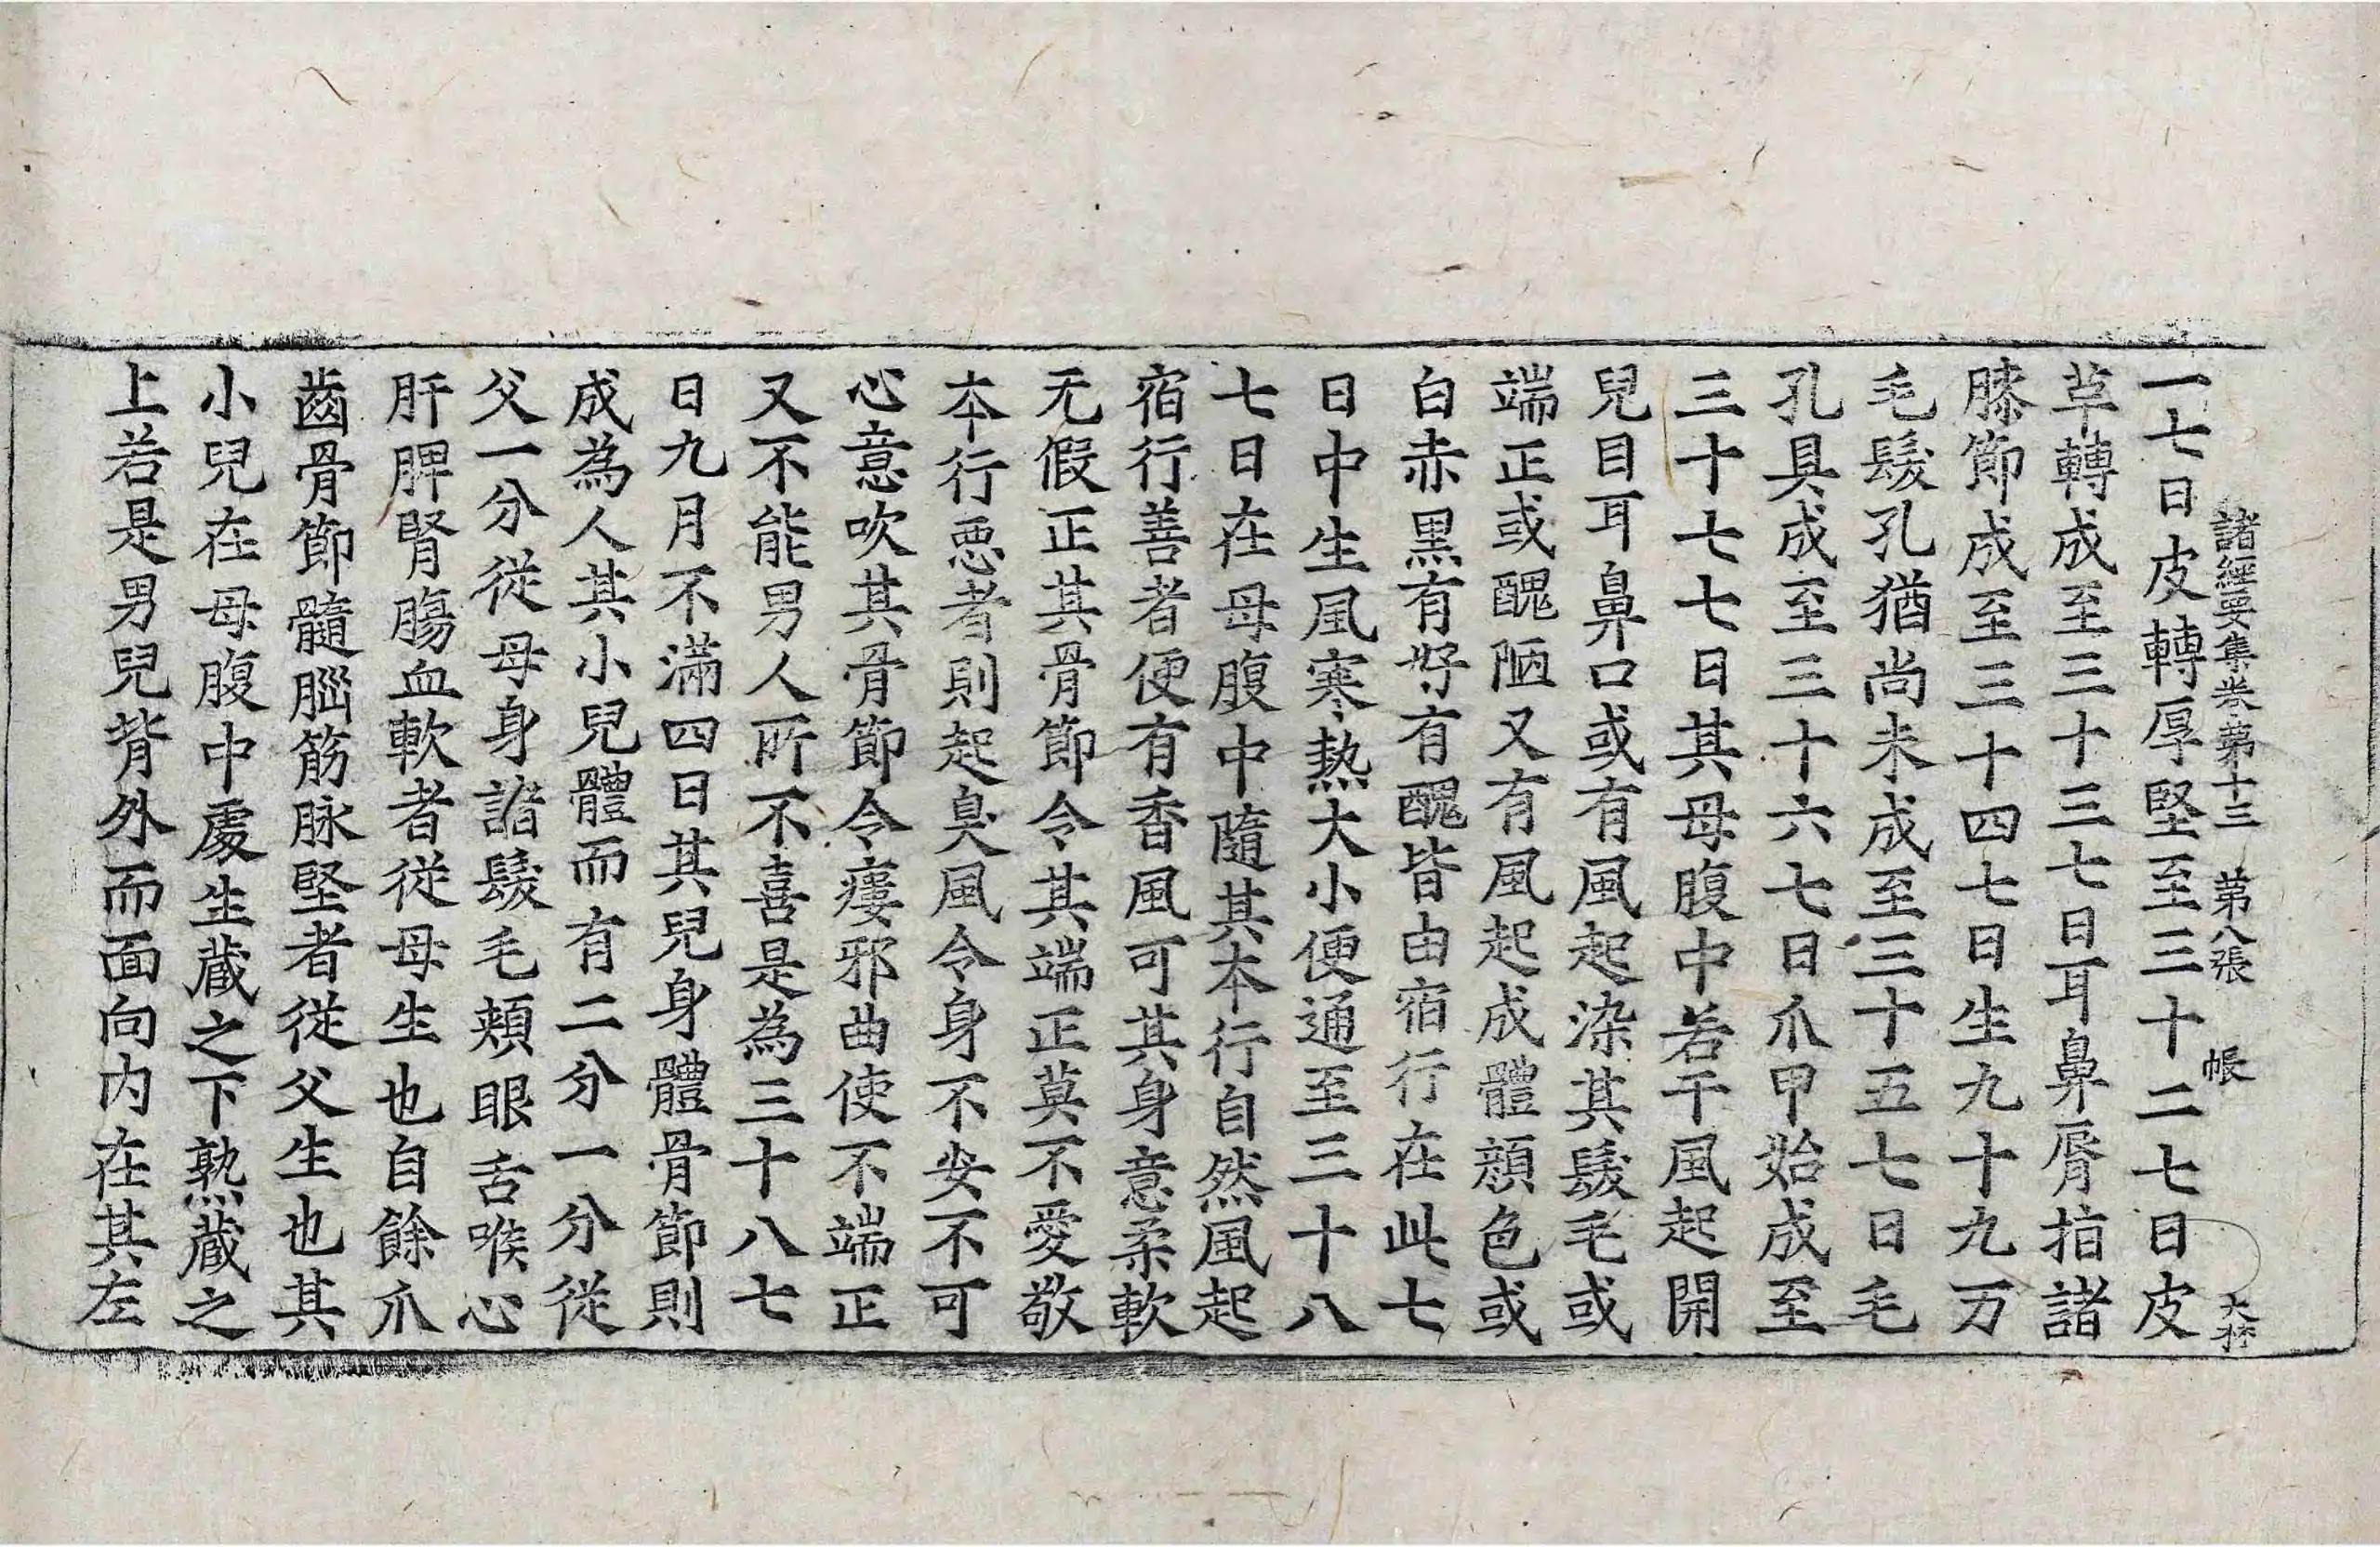 諸經要集卷第十三 第八張 帳
一七日皮轉厚堅至三十二七日皮
草轉成至三十三七日耳鼻脣指諸
膝節成至三十四七日生九十九万
毛髮孔猶尚未成至三十五七日毛
孔具成至三十六七日爪甲始成至
三十七七日其母腹中若干風起開
兒目耳鼻口或有風起染其髮毛或
端正或醜陋又有風起成體顏色或
白赤黑有好有醜皆由宿行在此七
日中生風寒熱大小便通至三十八
七日在母腹中隨其本行自然風起
宿行善者便有香風可其身意柔軟
无假正其骨節令其端正莫不愛敬
本行惡者則起臭風令身不安不可
心意吹其骨節令瘻邪曲使不端正
又不能男人所不喜是為三十八七
日九月不滿四日其兒身體骨節則
成為人其小兒體而有二分一分從
父一分從母身諸髮毛頰眼舌喉心
肝脾腎腸血軟者從母生也自餘爪
齒骨節髓腦筋脉堅者從父生也其
小兒在母腹中處生藏之下熟藏之
上若是男兒背外而面向內在其左